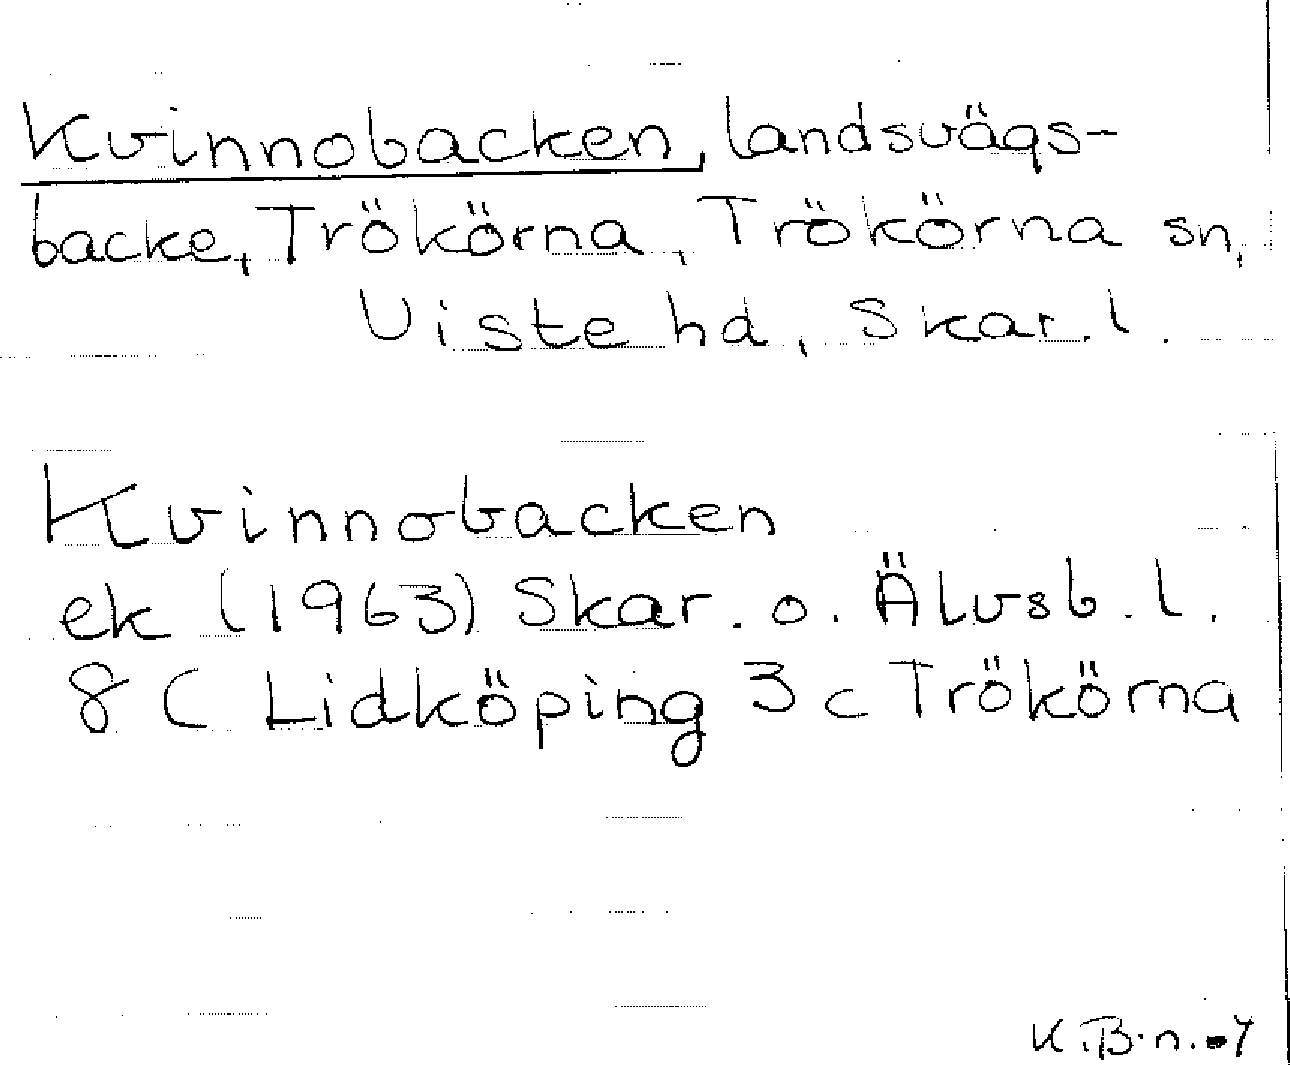 Kvinnobacken, landsvägs-
backe, Trökörna, Trökörna sn,
Viste hd, Skar. l.
Kvinnobacken
ek (1963) Skar. o. Älvsb. l.
8 C Lidköping 3 c Trökörna
K.B.n.